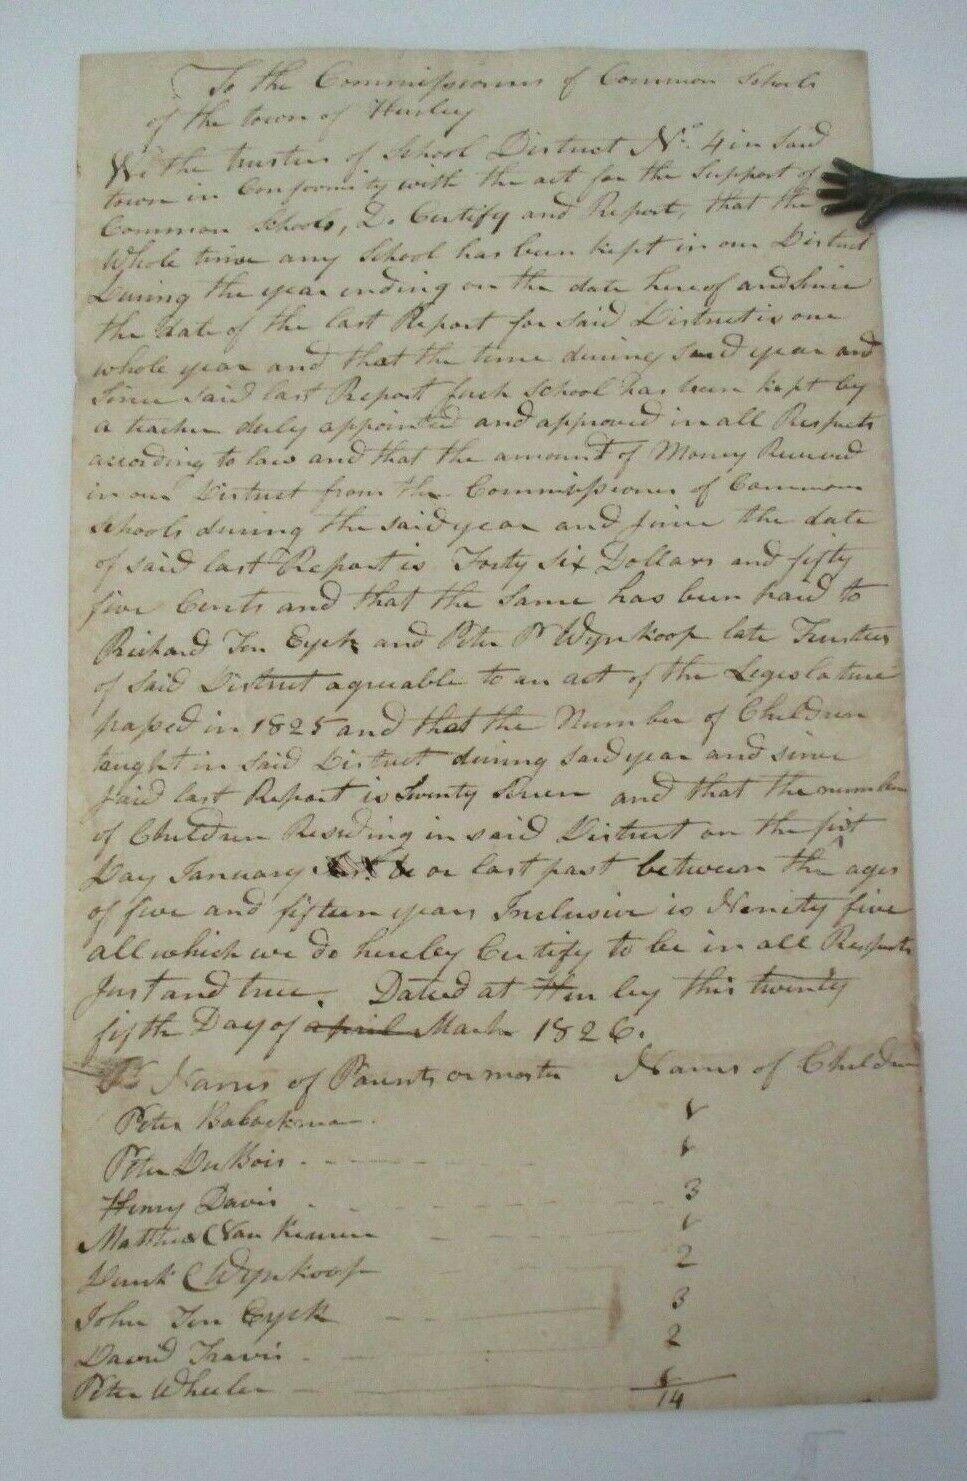 To the Commissioners of Common Schools
of the town of Hurley
We the trustees of School District No. 4 in said
town in Conformity with the act for the Support of
Common Schools, Do Certify and Report, that the
Whole time any School has been kept in our District
During the year ending on the date hereof and Since
the date of the last Report for said District is one
whole year and that the time during said year and
Since said last Report such School has been kept by
a teacher duly appointed and approved in all Respects
according to law and that the amount of Money Received
in our District from the Commissioners of Common
Schools during the said year and since the date
of said last Report is Forty Six Dollars and fifty
five Cents and that the Same has been paid to
Richard Ten Eyck and Peter P Wynkoop late Trustees
of Said District agreable to an act of the Legislature
passed in 1825 and that the Number of Children
taught in said District during said year and since
said last Report is Twenty Seven and that the number
of Children Residing in said District on the first
Day January or last past between the ages
of five and fifteen years Inclusive is Ninety five
all which we do hereby Certify to be in all Respects
Just and true. Dated at Hurley this twenty
fifth Day of april March 1826.
Names of Parents or master Names of Children
Peter 1
Peter DuBois 1
Henry Davis 3
Matthew Van 1
Wynkoop 2
John Ten Eyck 3
David Travis 2
Peter Wheeler 1
14